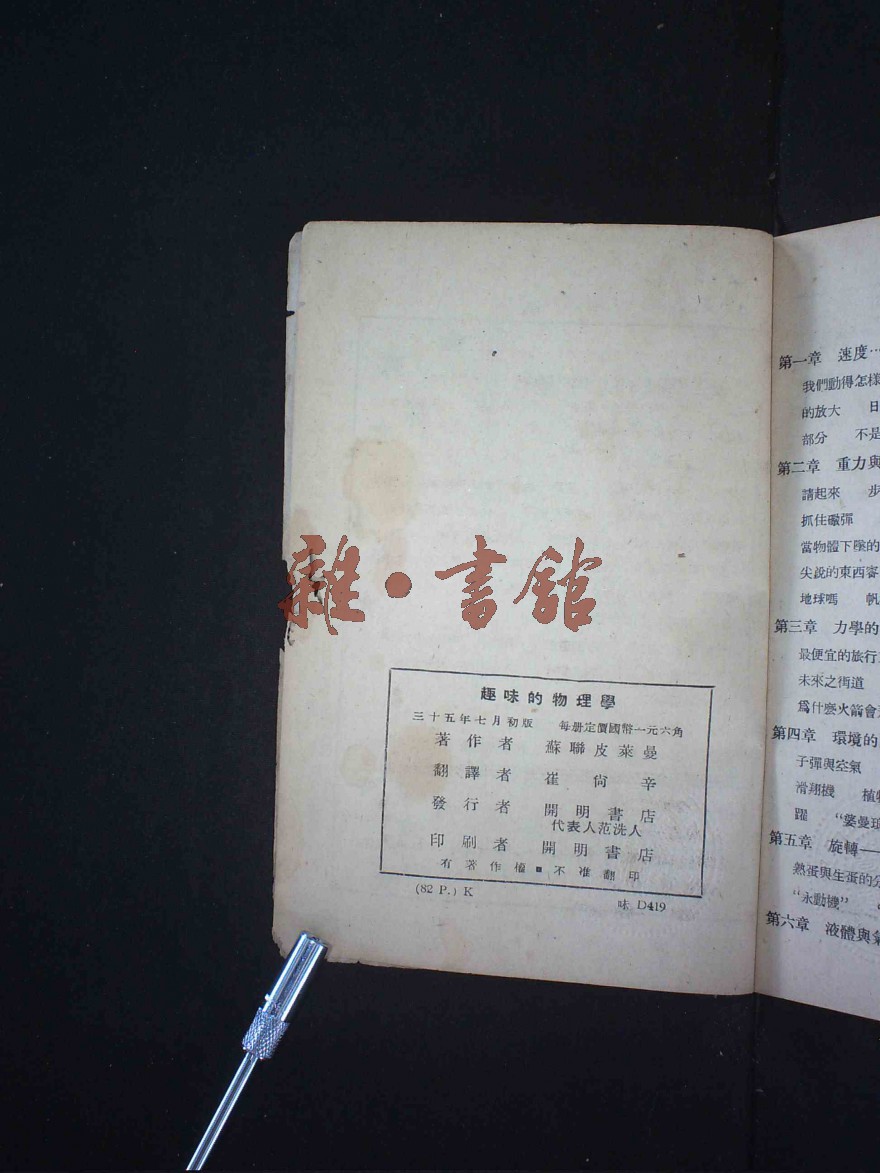 雜·書館
趣味的物理學
三十五年七月初版 每册定價國幣一元六角
著作者 蘇聯皮萊曼
翻譯者 崔尙辛
發行者 開明書店
代表人范洗人
印刷者 開明書店
有著作權■不准翻印
(82 P.) K 味 D419
第一章 速度…
我們動得怎樣
的放大 日
部分 不是
第二章 重力與
請起來 步
抓住礮彈
當物體下墜的
尖說的東西
地球嗎 帆
第三章 力學的
最便宜的旅行
未來之街道
爲什麽火箭會
第四章 環境的
子彈與空氣
滑翔機 植物
躍 “婆曼
第五章 旋轉—
熱蛋與生蛋的分
“永動機”
第六章 液體與氣